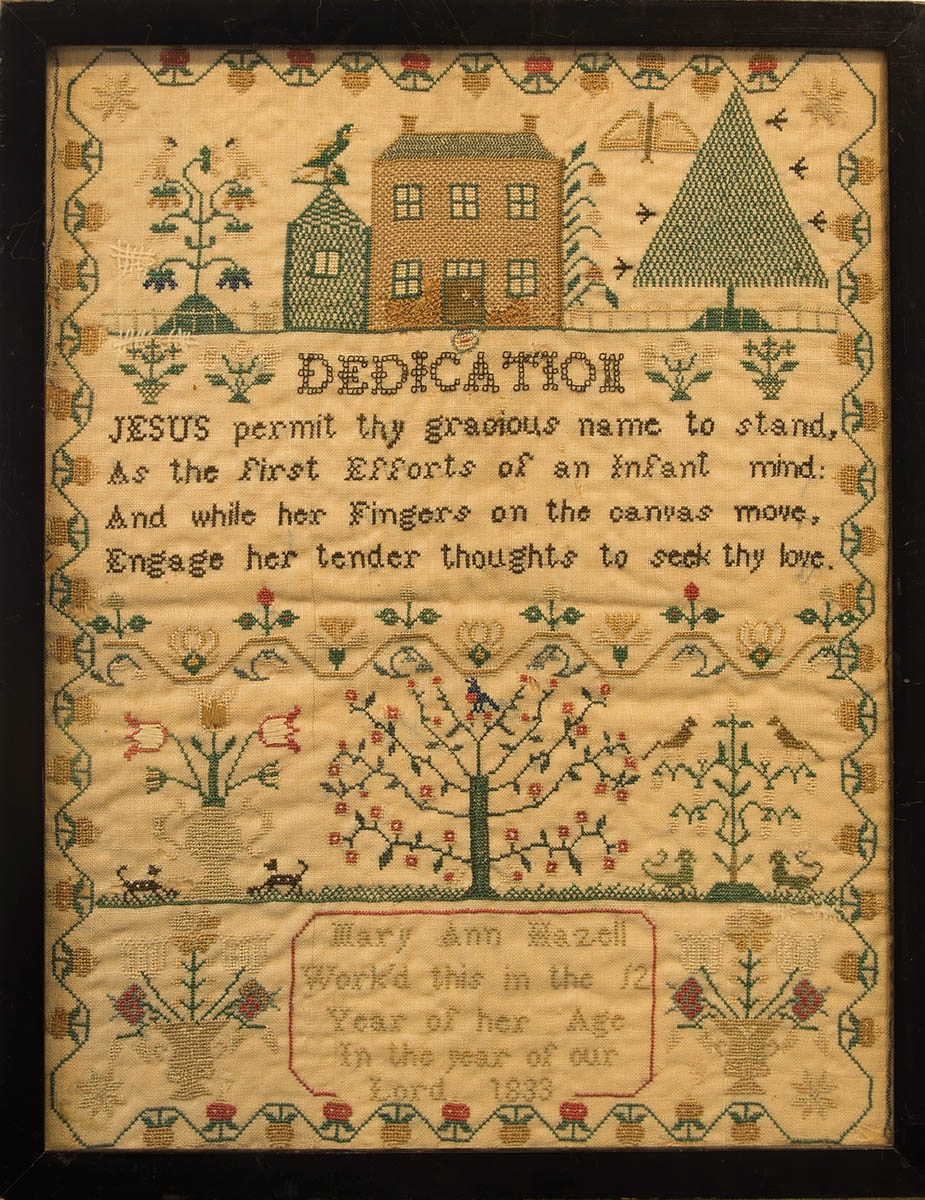 DEDICATION
JESUS permit thy gracious name to stand,
As the first Efforts of an Infant mind:
And while her Fingers on the canvas move,
Engage her tender thoughts to seek thy love.
Mary Ann Hazell
Work'd this in the 12
Year of her Age
In the year of our
Lord 1833